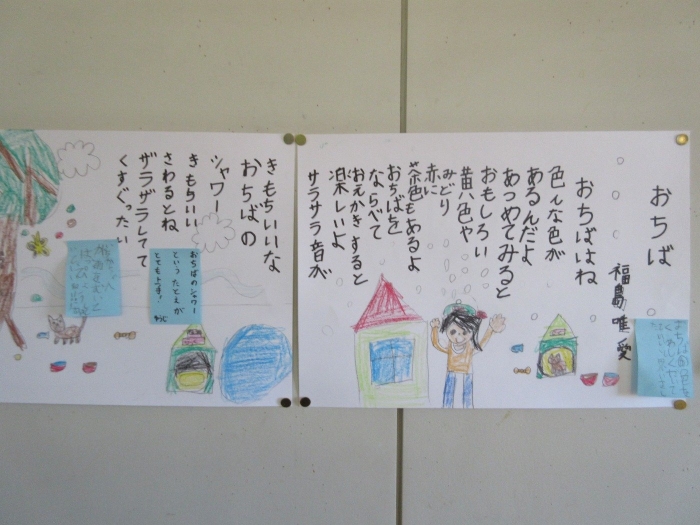 おちば
福島唯愛
おちばはね
色んな色が
あるんだよ
あつめてみると
おもしろい
黄色や
みどり
赤に
茶色もあるよ
おちばを
ならべて
おえかきすると
楽しいよ
サラサラ音が
きもちいいな
おちばの
シャワー
きもちいい
さわるとね
ザラザラしてて
くすぐったい
おちばのシャワー
というたとえが
とても上手！